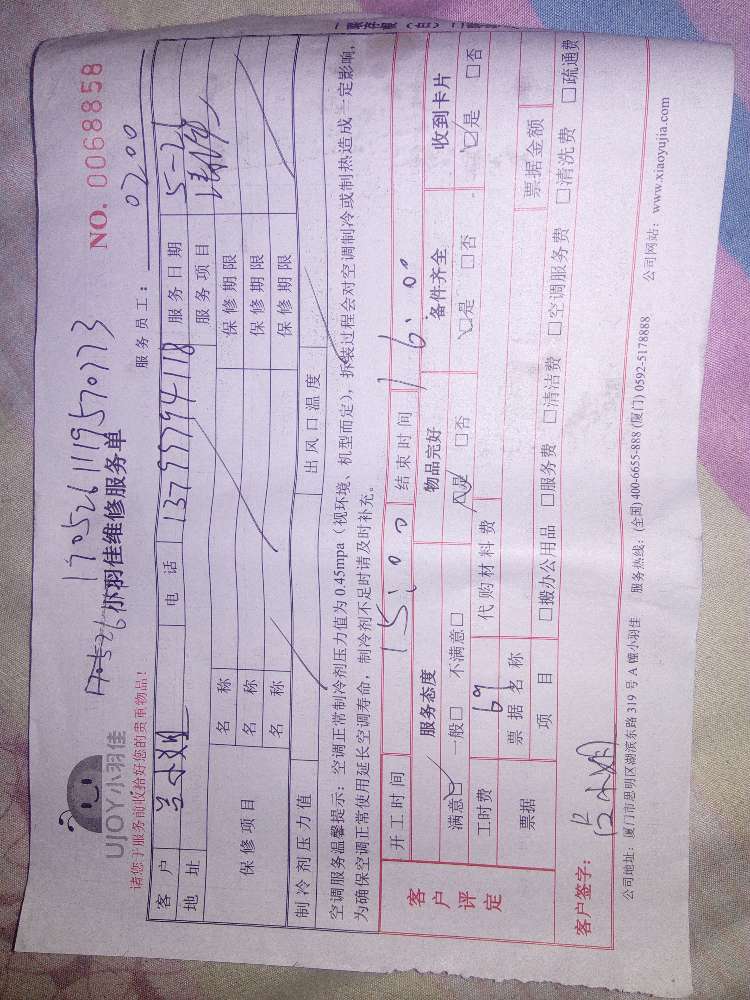 NO. 0068858
1705261119570173
170526
小羽佳维修服务单
UJOY小羽佳
请您于服务前收拾好您的贵重物品!
服务员工: 0200
客户 电话 13797794118 服务日期 5-26
地址 服务项目
保修项目 名称 保修期限
名称 保修期限
名称 保修期限
制冷剂压力值 出风口温度
空调服务温馨提示: 空调正常制冷剂压力值为0.45mpa(视环境、机型而定), 拆装过程会对空调制冷或制热造成一定影响,
为确保空调正常使用延长空调寿命, 制冷剂不足时请及时补充。
客户评定
开工时间 15:00 结束时间 16:00
服务态度 物品完好 备件齐全 收到卡片
满意☑ 一般□ 不满意□ ☑是 □否 ☑是 □否 ☑是 □否
工时费 69 代购材料费
票据 票据名称 票据金额
项目 □搬办公用品 □服务费 □清洁费 □空调服务费 □清洗费 □疏通费
客户签字:
公司地址: 厦门市思明区湖滨东路319号A幢小羽佳 服务热线: (全国) 400-6655-888 (厦门) 0592-5178888 公司网站: www.xiaoyujia.com